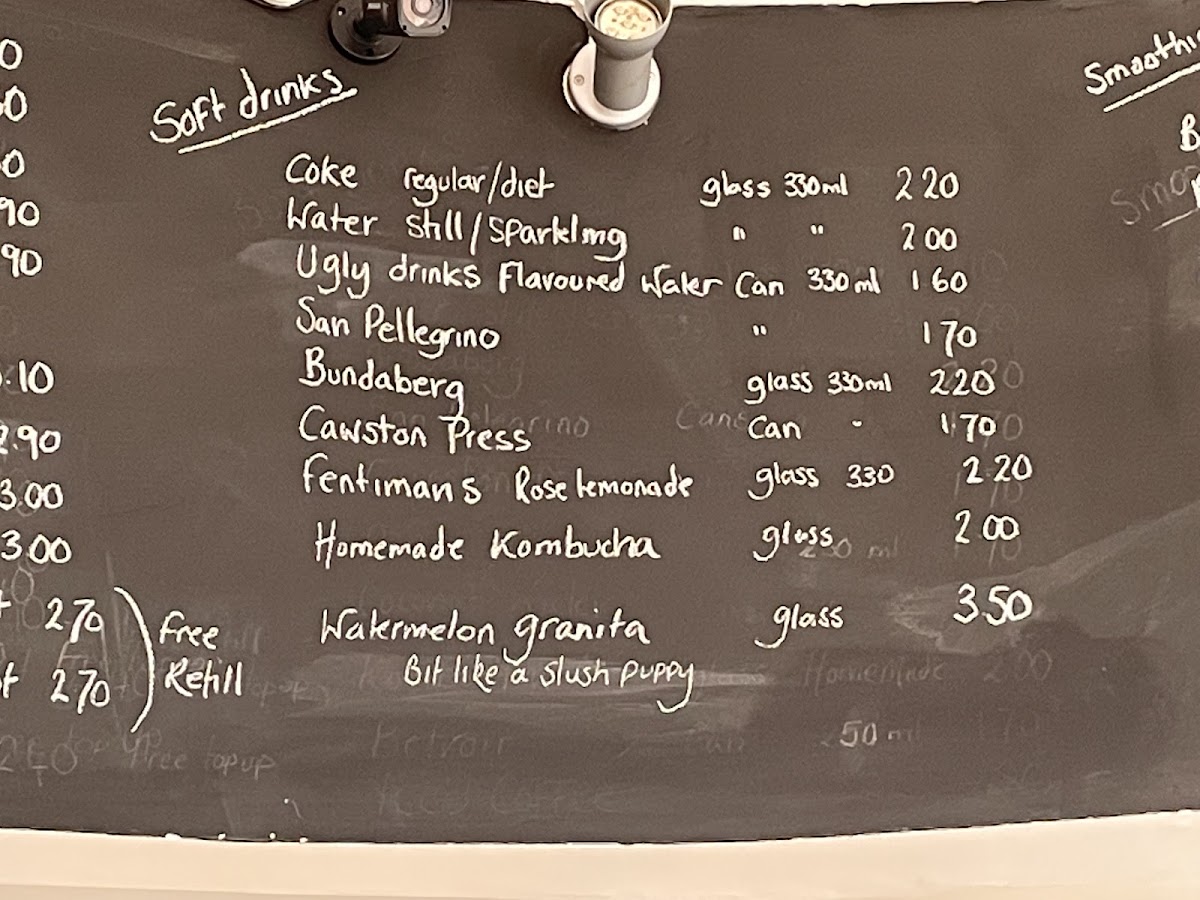 Soft drinks
Smoothi
Coke regular/diet glass 330ml 2 20
Water still/sparkling " " 2 00
Ugly drinks Flavoured Water Can 330ml 1 60
San Pellegrino " 1 70
Bundaberg glass 330ml 220
Cawston Press Can " 1.70
Fentimans Rose lemonade glass 330 2.20
Homemade Kombucha glass 2 00
Watermelon granita glass 3.50
Bit like a slush puppy
0
0
0
90
90
.10
2.90
3.00
3.00
270
270
Free
Refill
B
Homemade 200
50 ml
Free topup